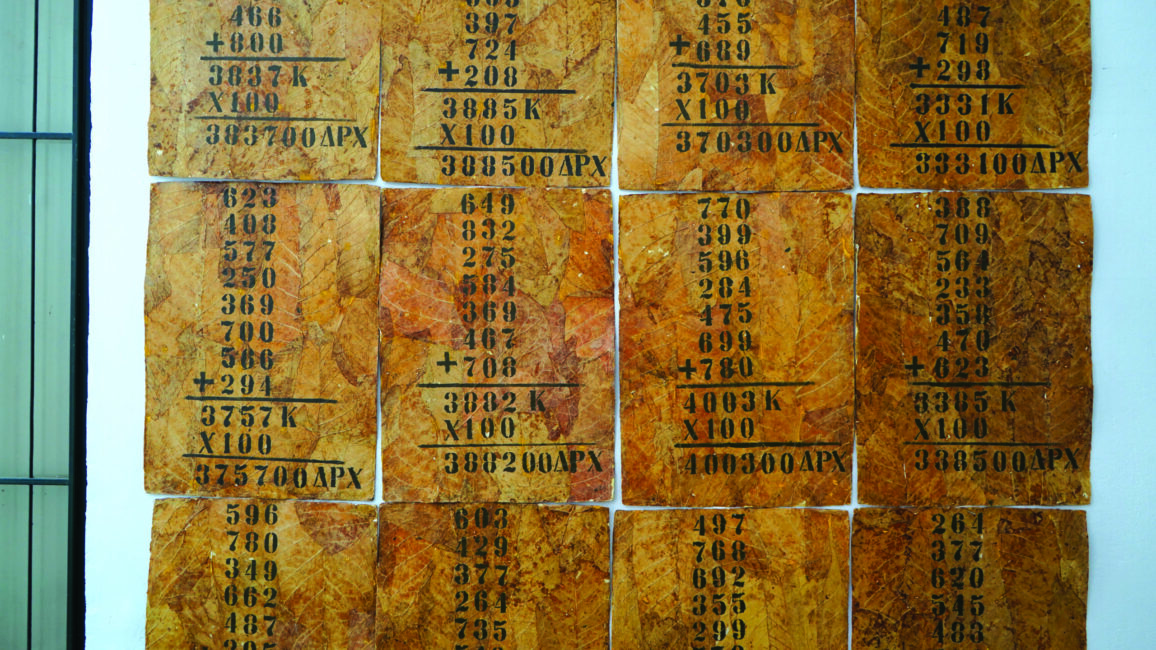 466
+800
3837 K
X100
383700ΔΡΧ
397
724
+208
3885 K
X100
388500ΔΡΧ
455
+689
3703 K
X100
370300ΔΡΧ
487
719
+298
3331 K
X100
333100ΔΡΧ
623
408
577
250
369
700
566
+294
3757 K
X100
375700ΔΡΧ
649
832
275
584
369
467
+708
3882 K
X100
388200ΔΡΧ
770
399
596
284
475
699
+780
4003 K
X100
400300ΔΡΧ
388
709
564
233
358
470
+623
3365 K
X100
338500ΔΡΧ
596
780
349
662
487
603
429
377
264
735
497
768
692
355
299
264
377
620
545
483